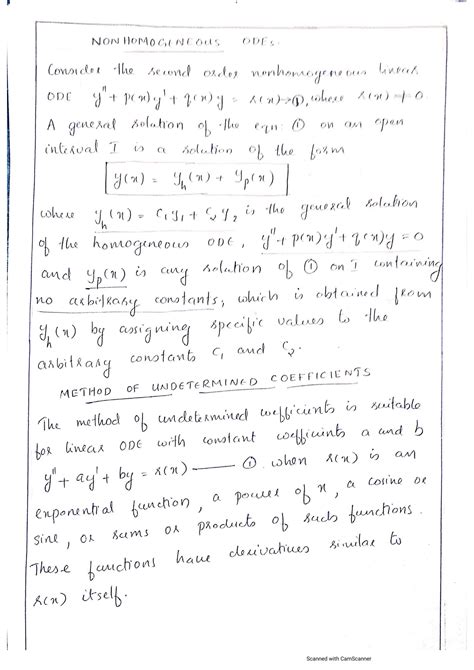 NONHOMOGENEOUS ODEs:
Consider the second order nonhomogeneous linear
ODE y" + p(x)y' + q(x)y = r(x)→①, where r(x) ≠ 0.
A general solution of the eqn: ① on an open
interval I is a solution of the form
y(x) = y_h(x) + y_p(x)
where y_h(x) = c₁y₁ + c₂y₂ is the general solution
of the homogeneous ODE, y" + p(x)y' + q(x)y = 0
and y_p(x) is any solution of ① on I containing
no arbitrary constants, which is obtained from
y_h(x) by assigning specific values to the
arbitrary constants c₁ and c₂.
METHOD OF UNDETERMINED COEFFICIENTS
The method of undetermined coefficients is suitable
for linear ODE with constant coefficients a and b
y" + ay' + by = r(x) —— ①. when r(x) is an
exponential function, a power of x, a cosine or
sine, or sums or products of such functions.
These functions have derivatives similar to
r(x) itself.
Scanned with CamScanner